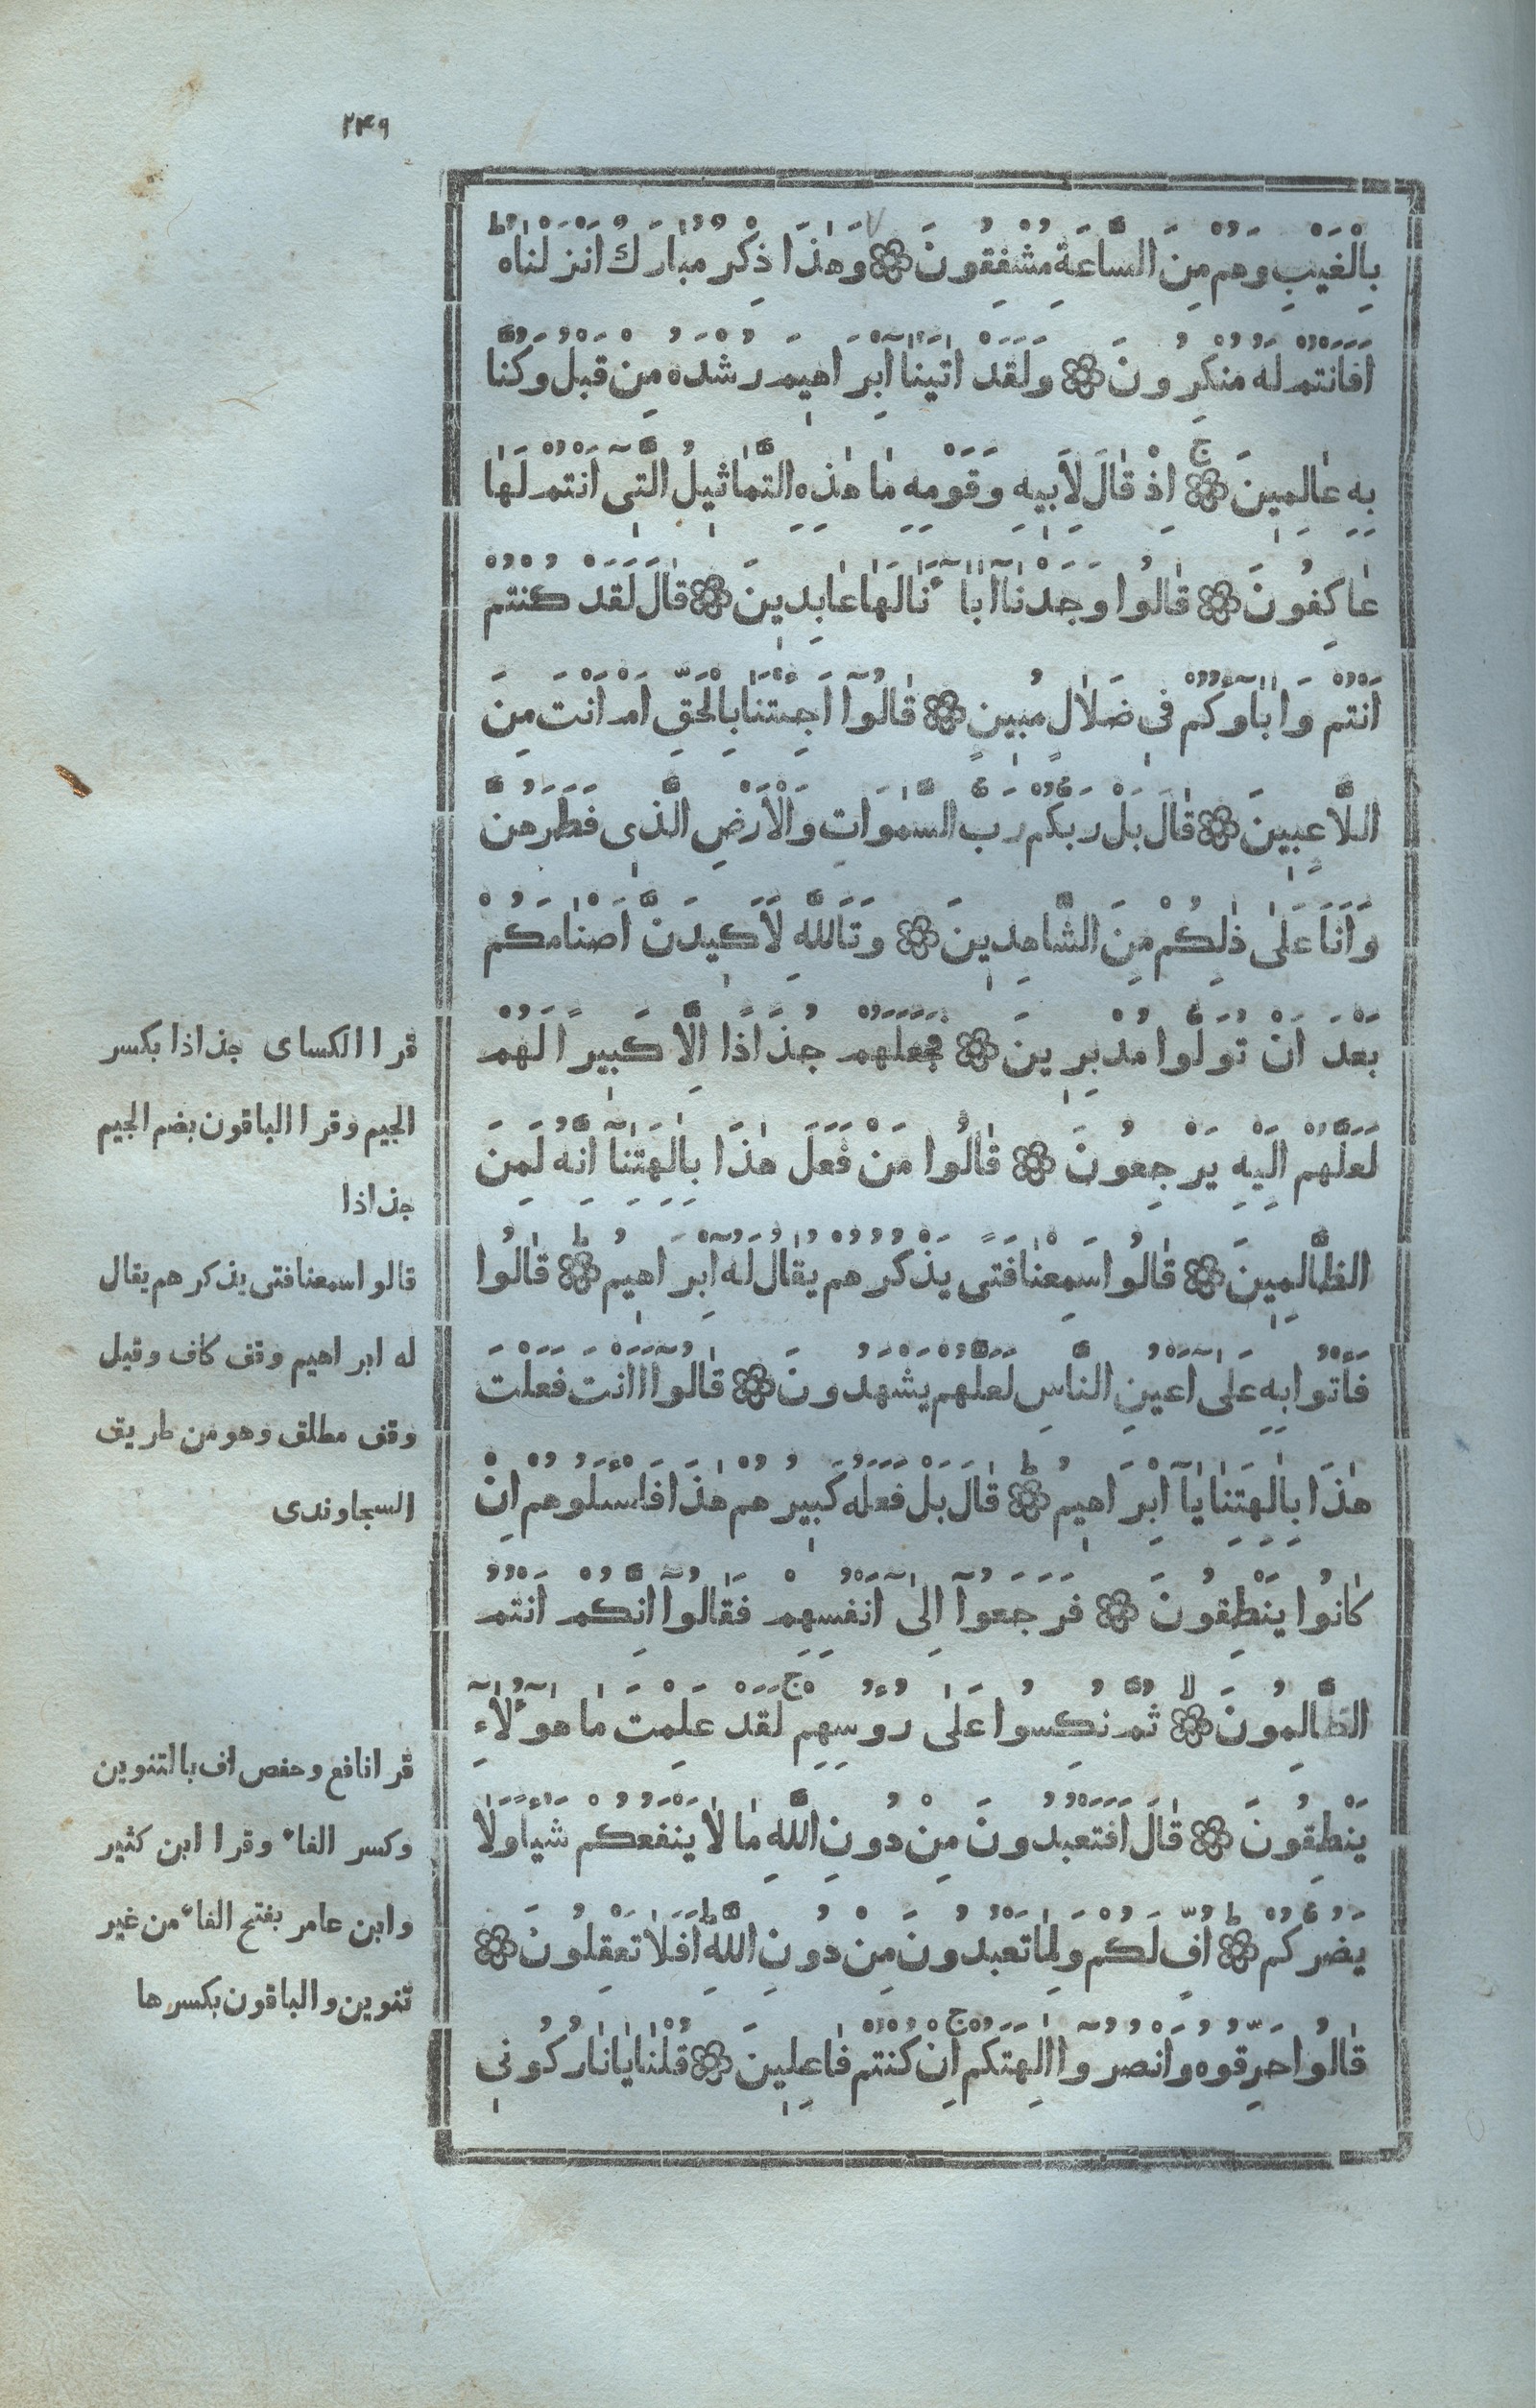 ٢٤٩
بِالْغَيْبِ وَهُمْ مِنَ السَّاعَةِ مُشْفِقُونَ ۞ وَهٰذَا ذِكْرٌ مُبَارَكٌ اَنْزَلْنَاهُ ط
اَفَاَنْتُمْ لَهُ مُنْكِرُونَ ۞ وَلَقَدْ اٰتَيْنَا اِبْرَاهِيمَ رُشْدَهُ مِنْ قَبْلُ وَكُنَّا
بِهِ عَالِمِينَ ج ۞ اِذْ قَالَ لِاَبِيهِ وَقَوْمِهِ مَا هٰذِهِ التَّمَاثِيلُ الَّتِى اَنْتُمْ لَهَا
عَاكِفُونَ ۞ قَالُوا وَجَدْنَا اٰبَاءَنَا لَهَا عَابِدِينَ ۞ قَالَ لَقَدْ كُنْتُمْ
اَنْتُمْ وَاٰبَاؤُكُمْ فِى ضَلَالٍ مُبِينٍ ۞ قَالُوآ اَجِئْتَنَا بِالْحَقِّ اَمْ اَنْتَ مِنَ
اللَّاعِبِينَ ۞ قَالَ بَلْ رَبُّكُمْ رَبُّ السَّمٰوَاتِ وَالْاَرْضِ الَّذِى فَطَرَهُنَّ
وَاَنَا عَلٰى ذٰلِكُمْ مِنَ الشَّاهِدِينَ ۞ وَتَاللّٰهِ لَاَكِيدَنَّ اَصْنَامَكُمْ
بَعْدَ اَنْ تُوَلُّوا مُدْبِرِينَ ۞ فَجَعَلَهُمْ جُذَاذًا اِلَّا كَبِيرًا لَهُمْ
لَعَلَّهُمْ اِلَيْهِ يَرْجِعُونَ ۞ قَالُوا مَنْ فَعَلَ هٰذَا بِاٰلِهَتِنَآ اِنَّهُ لَمِنَ
الظَّالِمِينَ ۞ قَالُوا سَمِعْنَا فَتًى يَذْكُرُهُمْ يُقَالُ لَهُ اِبْرَاهِيمُ ط ۞ قَالُوا
فَأْتُوا بِهِ عَلٰى اَعْيُنِ النَّاسِ لَعَلَّهُمْ يَشْهَدُونَ ۞ قَالُوآ ااَنْتَ فَعَلْتَ
هٰذَا بِاٰلِهَتِنَا يَآ اِبْرَاهِيمُ ط ۞ قَالَ بَلْ فَعَلَهُ كَبِيرُهُمْ هٰذَا فَاسْئَلُوهُمْ اِنْ
كَانُوا يَنْطِقُونَ ۞ فَرَجَعُوآ اِلٰى اَنْفُسِهِمْ فَقَالُوآ اِنَّكُمْ اَنْتُمُ
الظَّالِمُونَ لا ۞ ثُمَّ نُكِسُوا عَلٰى رُءُوسِهِمْ ج لَقَدْ عَلِمْتَ مَا هٰؤُلَاءِ
يَنْطِقُونَ ۞ قَالَ اَفَتَعْبُدُونَ مِنْ دُونِ اللّٰهِ مَا لَا يَنْفَعُكُمْ شَيْئًا وَلَا
يَضُرُّكُمْ ط ۞ اُفٍّ لَكُمْ وَلِمَا تَعْبُدُونَ مِنْ دُونِ اللّٰهِ ط اَفَلَا تَعْقِلُونَ ۞
قَالُوا حَرِّقُوهُ وَانْصُرُوآ اٰلِهَتَكُمْ ج اِنْ كُنْتُمْ فَاعِلِينَ ۞ قُلْنَا يَا نَارُ كُونِى
قرا الكساى جذاذا بكسر
الجيم وقرا الباقون بضم الجيم
جذاذا
قالوا سمعنا فتى يذكرهم يقال
له ابراهيم وقف كاف وقيل
وقف مطلق وهو من طريق
السجاوندى
قرا نافع وحفص اف بالتنوين
وكسر الفاء وقرا ابن كثير
وابن عامر بفتح الفاء من غير
تنوين والباقون بكسرها